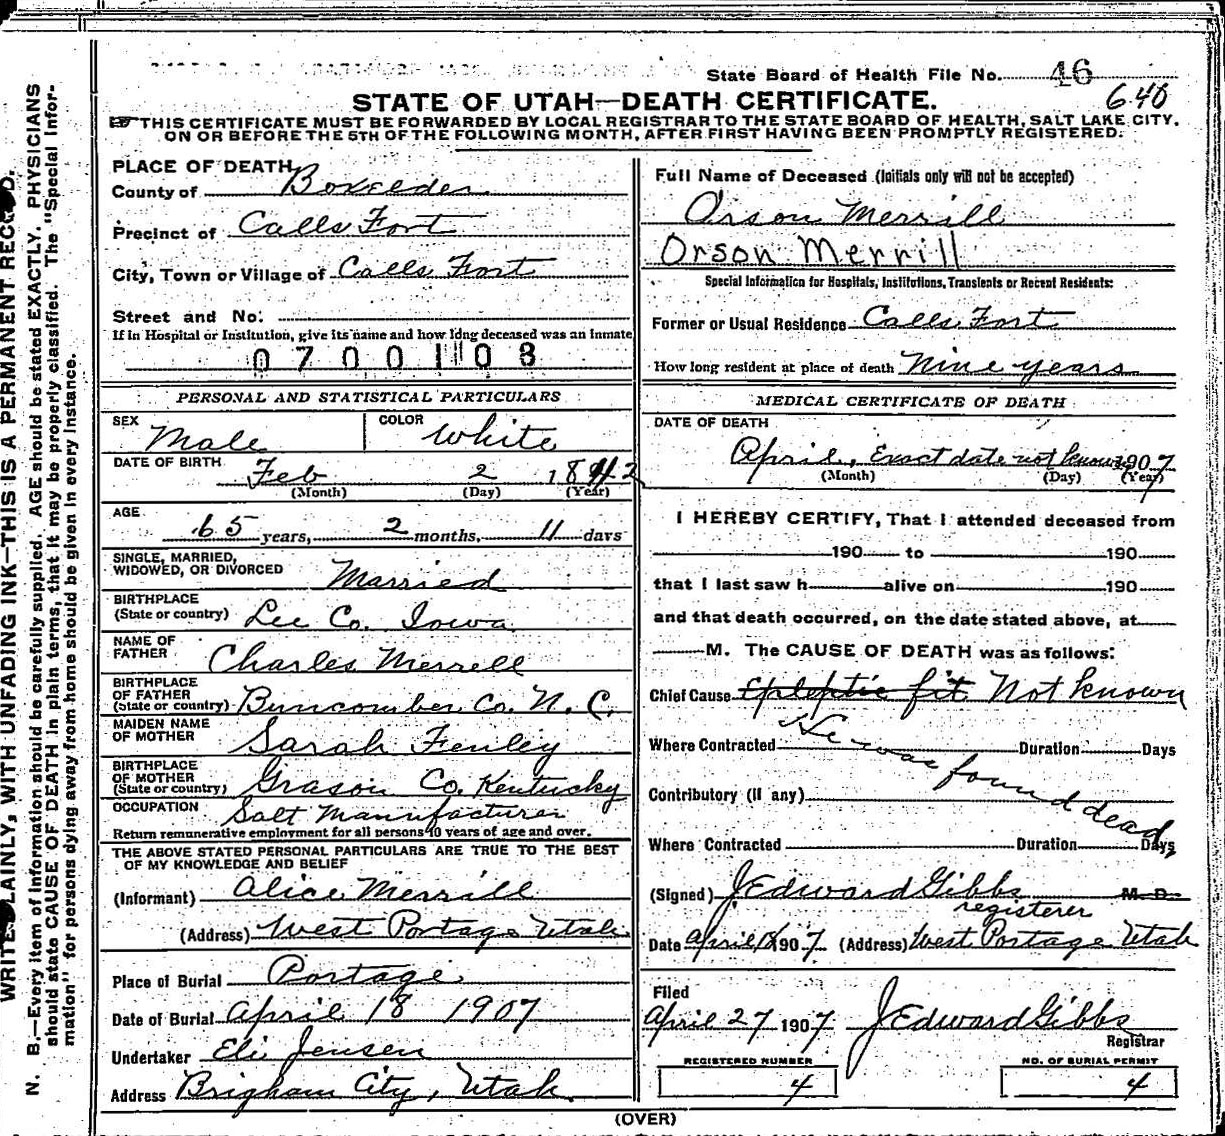 State Board of Health File No. 46
640
STATE OF UTAH—DEATH CERTIFICATE.
THIS CERTIFICATE MUST BE FORWARDED BY LOCAL REGISTRAR TO THE STATE BOARD OF HEALTH, SALT LAKE CITY,
ON OR BEFORE THE 5TH OF THE FOLLOWING MONTH, AFTER FIRST HAVING BEEN PROMPTLY REGISTERED.
WRITE PLAINLY, WITH UNFADING INK—THIS IS A PERMANENT RECORD.
N. B.—Every item of information should be carefully supplied. AGE should be stated EXACTLY. PHYSICIANS
should state CAUSE OF DEATH in plain terms, that it may be properly classified. The "Special Infor-
mation" for persons dying away from home should be given in every instance.
PLACE OF DEATH
County of Boxelder
Precinct of Calls Fort
City, Town or Village of Calls Fort
Street and No.
If in Hospital or Institution, give its name and how long deceased was an inmate
0700108
PERSONAL AND STATISTICAL PARTICULARS
SEX Male COLOR White
DATE OF BIRTH Feb 2 1842
(Month) (Day) (Year)
AGE 65 years, 2 months, 11 days
SINGLE, MARRIED,
WIDOWED, OR DIVORCED Married
BIRTHPLACE
(State or country) Lee Co. Iowa
NAME OF
FATHER Charles Merrell
BIRTHPLACE
OF FATHER
(State or country) Buncomber Co. N. C.
MAIDEN NAME
OF MOTHER Sarah Fenley
BIRTHPLACE
OF MOTHER
(State or country) Grason Co. Kentucky
OCCUPATION Salt Manufacturer
Return remunerative employment for all persons 10 years of age and over.
THE ABOVE STATED PERSONAL PARTICULARS ARE TRUE TO THE BEST
OF MY KNOWLEDGE AND BELIEF
(Informant) Alice Merrill
(Address) West Portage Utah
Place of Burial Portage
Date of Burial April 18 1907
Undertaker Eli Jensen
Address Brigham City, Utah.
Full Name of Deceased (Initials only will not be accepted)
Orson Merrill
Orson Merrill
Special Information for Hospitals, Institutions, Transients or Recent Residents:
Former or Usual Residence Calls Fort
How long resident at place of death Nine years
MEDICAL CERTIFICATE OF DEATH
DATE OF DEATH
April, Exact date not known 1907
(Month) (Day) (Year)
I HEREBY CERTIFY, That I attended deceased from
190 to 190
that I last saw h alive on 190
and that death occurred, on the date stated above, at
M. The CAUSE OF DEATH was as follows:
Chief Cause Epleptic fit Not known
He was found dead
Where Contracted Duration Days
Contributory (if any)
Where Contracted Duration Days
(Signed) J Edward Gibbs M. D.
registerer
Date April 1907 (Address) West Portage Utah
Filed
April 27 1907 J Edward Gibbs
Registrar
REGISTERED NUMBER NO. OF BURIAL PERMIT
4 4
(OVER)